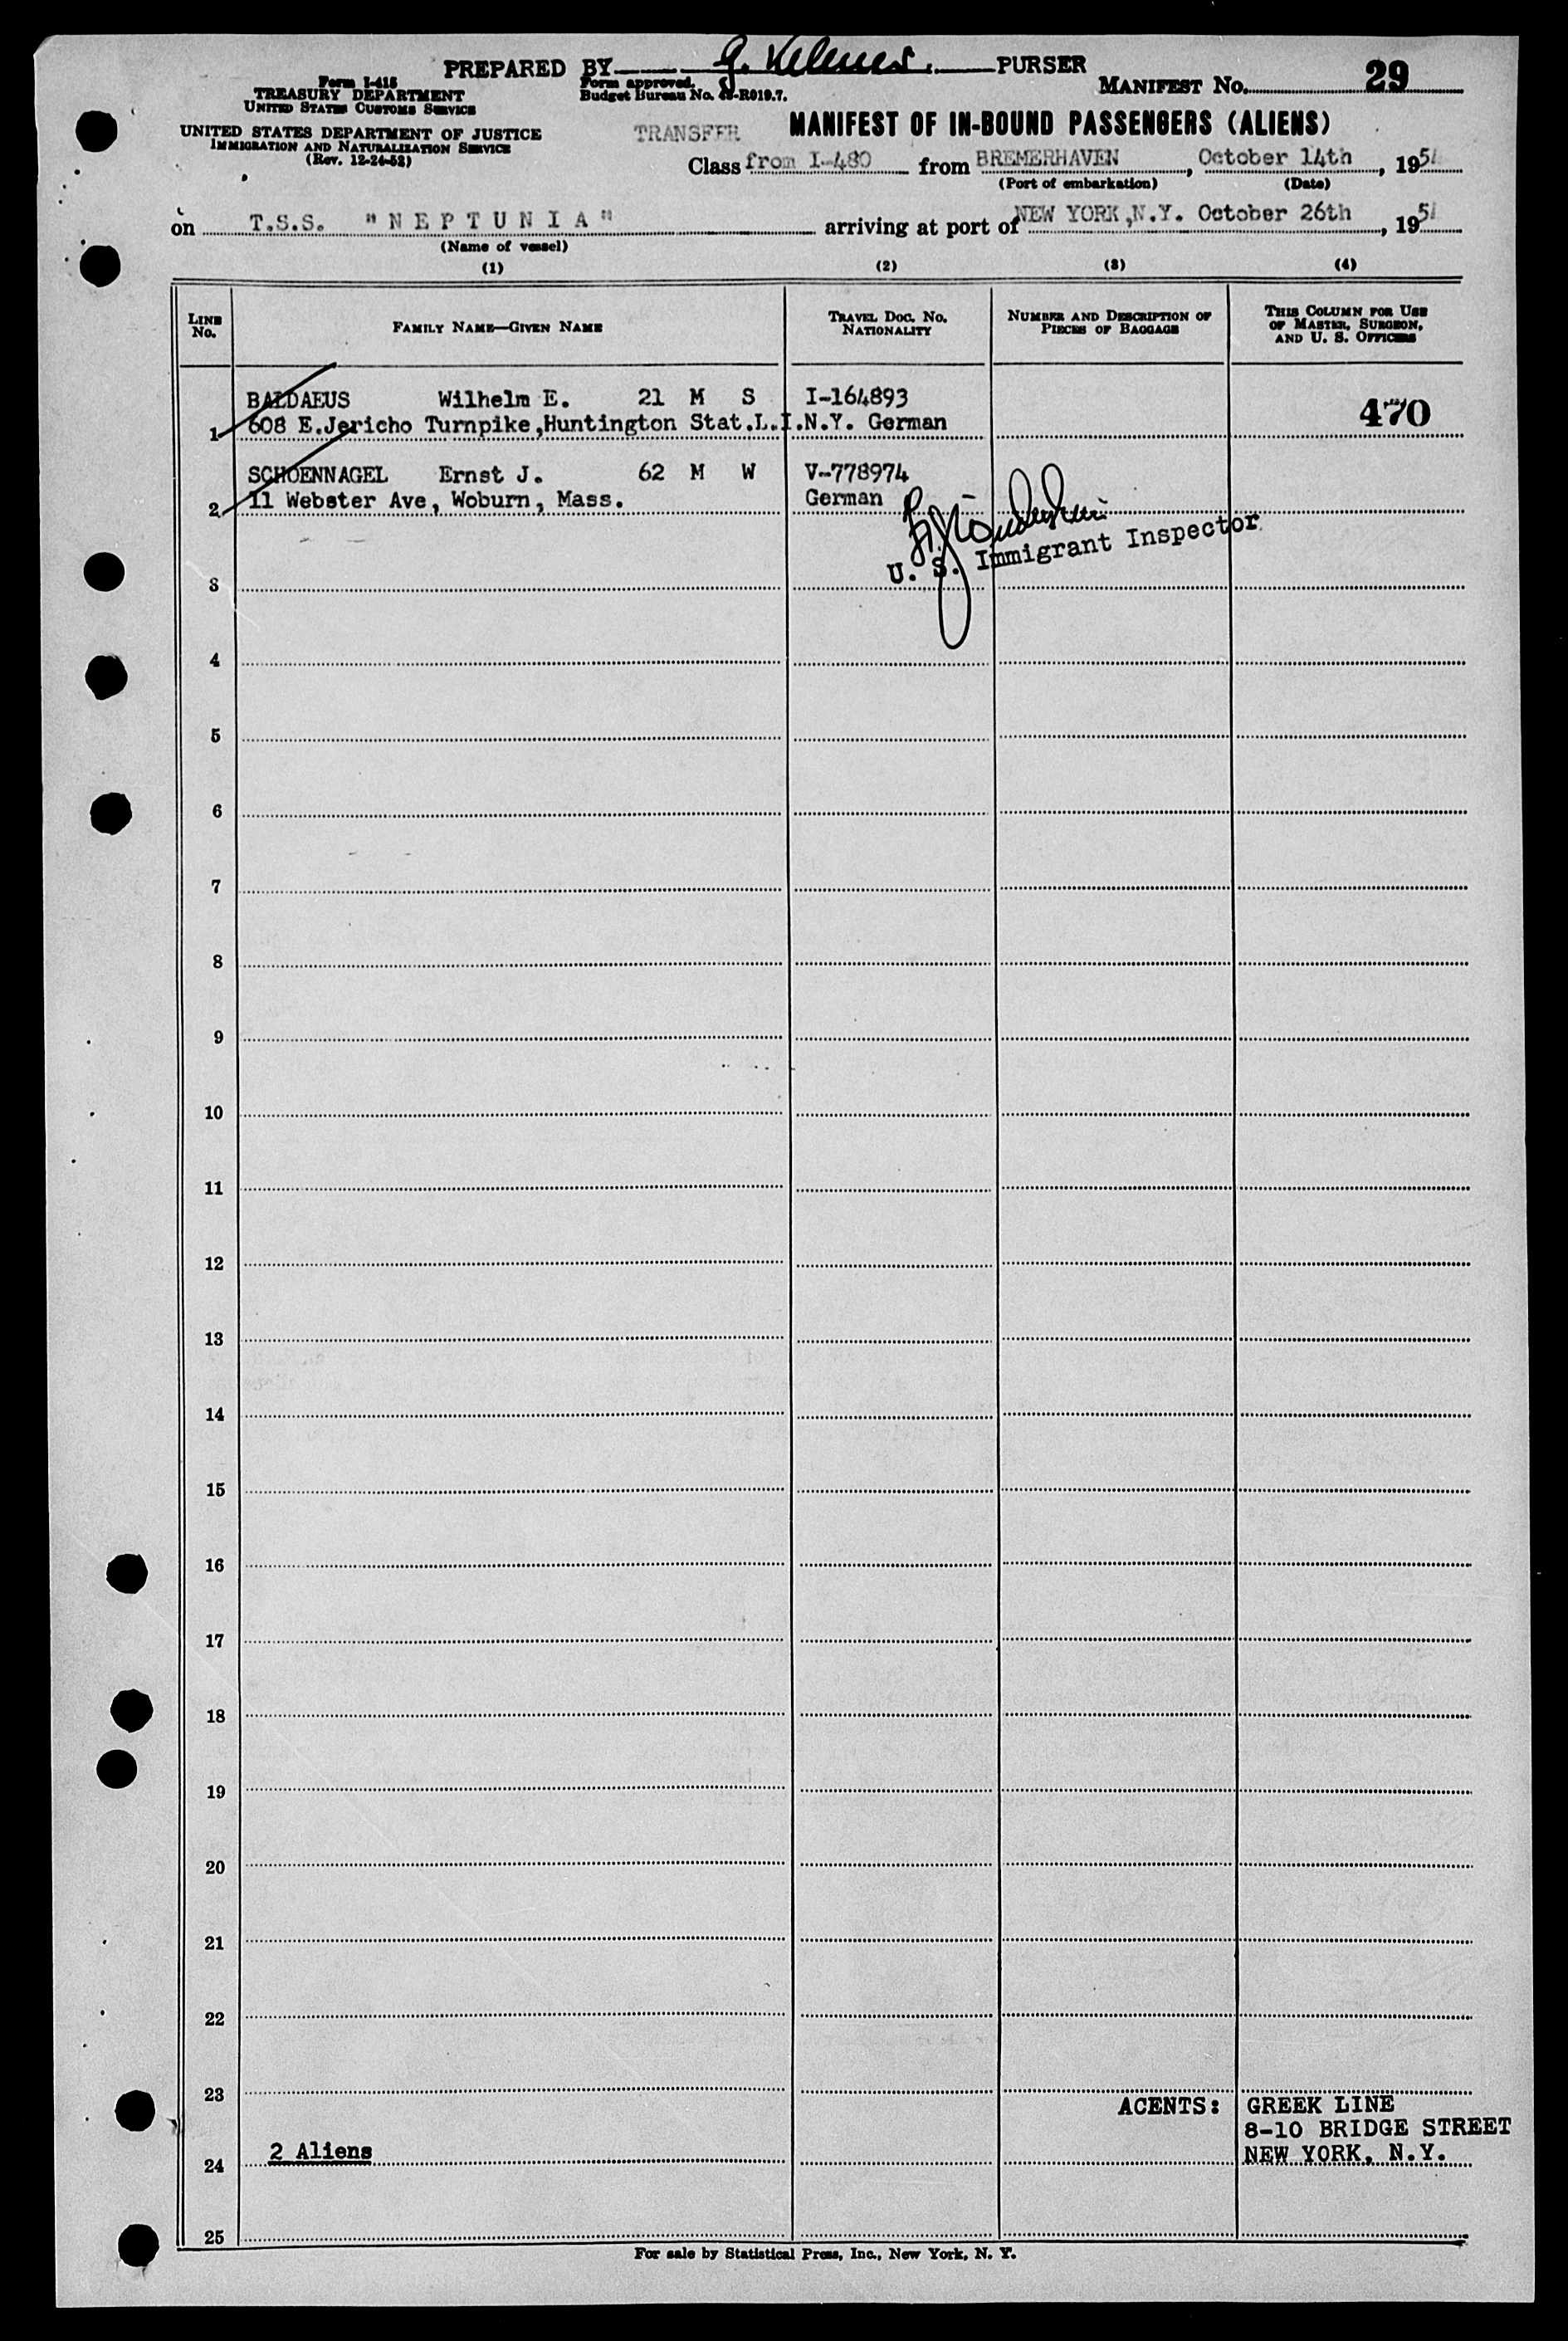 PREPARED BY G. Kelener. PURSER
Form I-415
TREASURY DEPARTMENT
UNITED STATES CUSTOMS SERVICE
Form approved.
Budget Bureau No. 43-R019.7.
MANIFEST No. 29
UNITED STATES DEPARTMENT OF JUSTICE
IMMIGRATION AND NATURALIZATION SERVICE
(Rev. 12-24-52)
MANIFEST OF IN-BOUND PASSENGERS (ALIENS)
TRANSFER
Class from I-480 from BREMERHAVEN, October 14th, 195
(Port of embarkation) (Date)
on T.S.S. "NEPTUNIA" arriving at port of NEW YORK,N.Y. October 26th, 195
(Name of vessel)
(1) (2) (3) (4)
LINE No. FAMILY NAME—GIVEN NAME TRAVEL DOC. No. NATIONALITY NUMBER AND DESCRIPTION OF PIECES OF BAGGAGE THIS COLUMN FOR USE OF MASTER, SURGEON, AND U. S. OFFICERS
BALDAEUS Wilhelm E. 21 M S I-164893 470
1 608 E.Jericho Turnpike,Huntington Stat.L.I.N.Y. German
SCHOENNAGEL Ernst J. 62 M W V-778974
2 11 Webster Ave, Woburn, Mass. German
U. S. Immigrant Inspector
3
4
5
6
7
8
9
10
11
12
13
14
15
16
17
18
19
20
21
22
23
AGENTS: GREEK LINE
8-10 BRIDGE STREET
24 2 Aliens NEW YORK, N.Y.
25
For sale by Statistical Press, Inc., New York, N. Y.